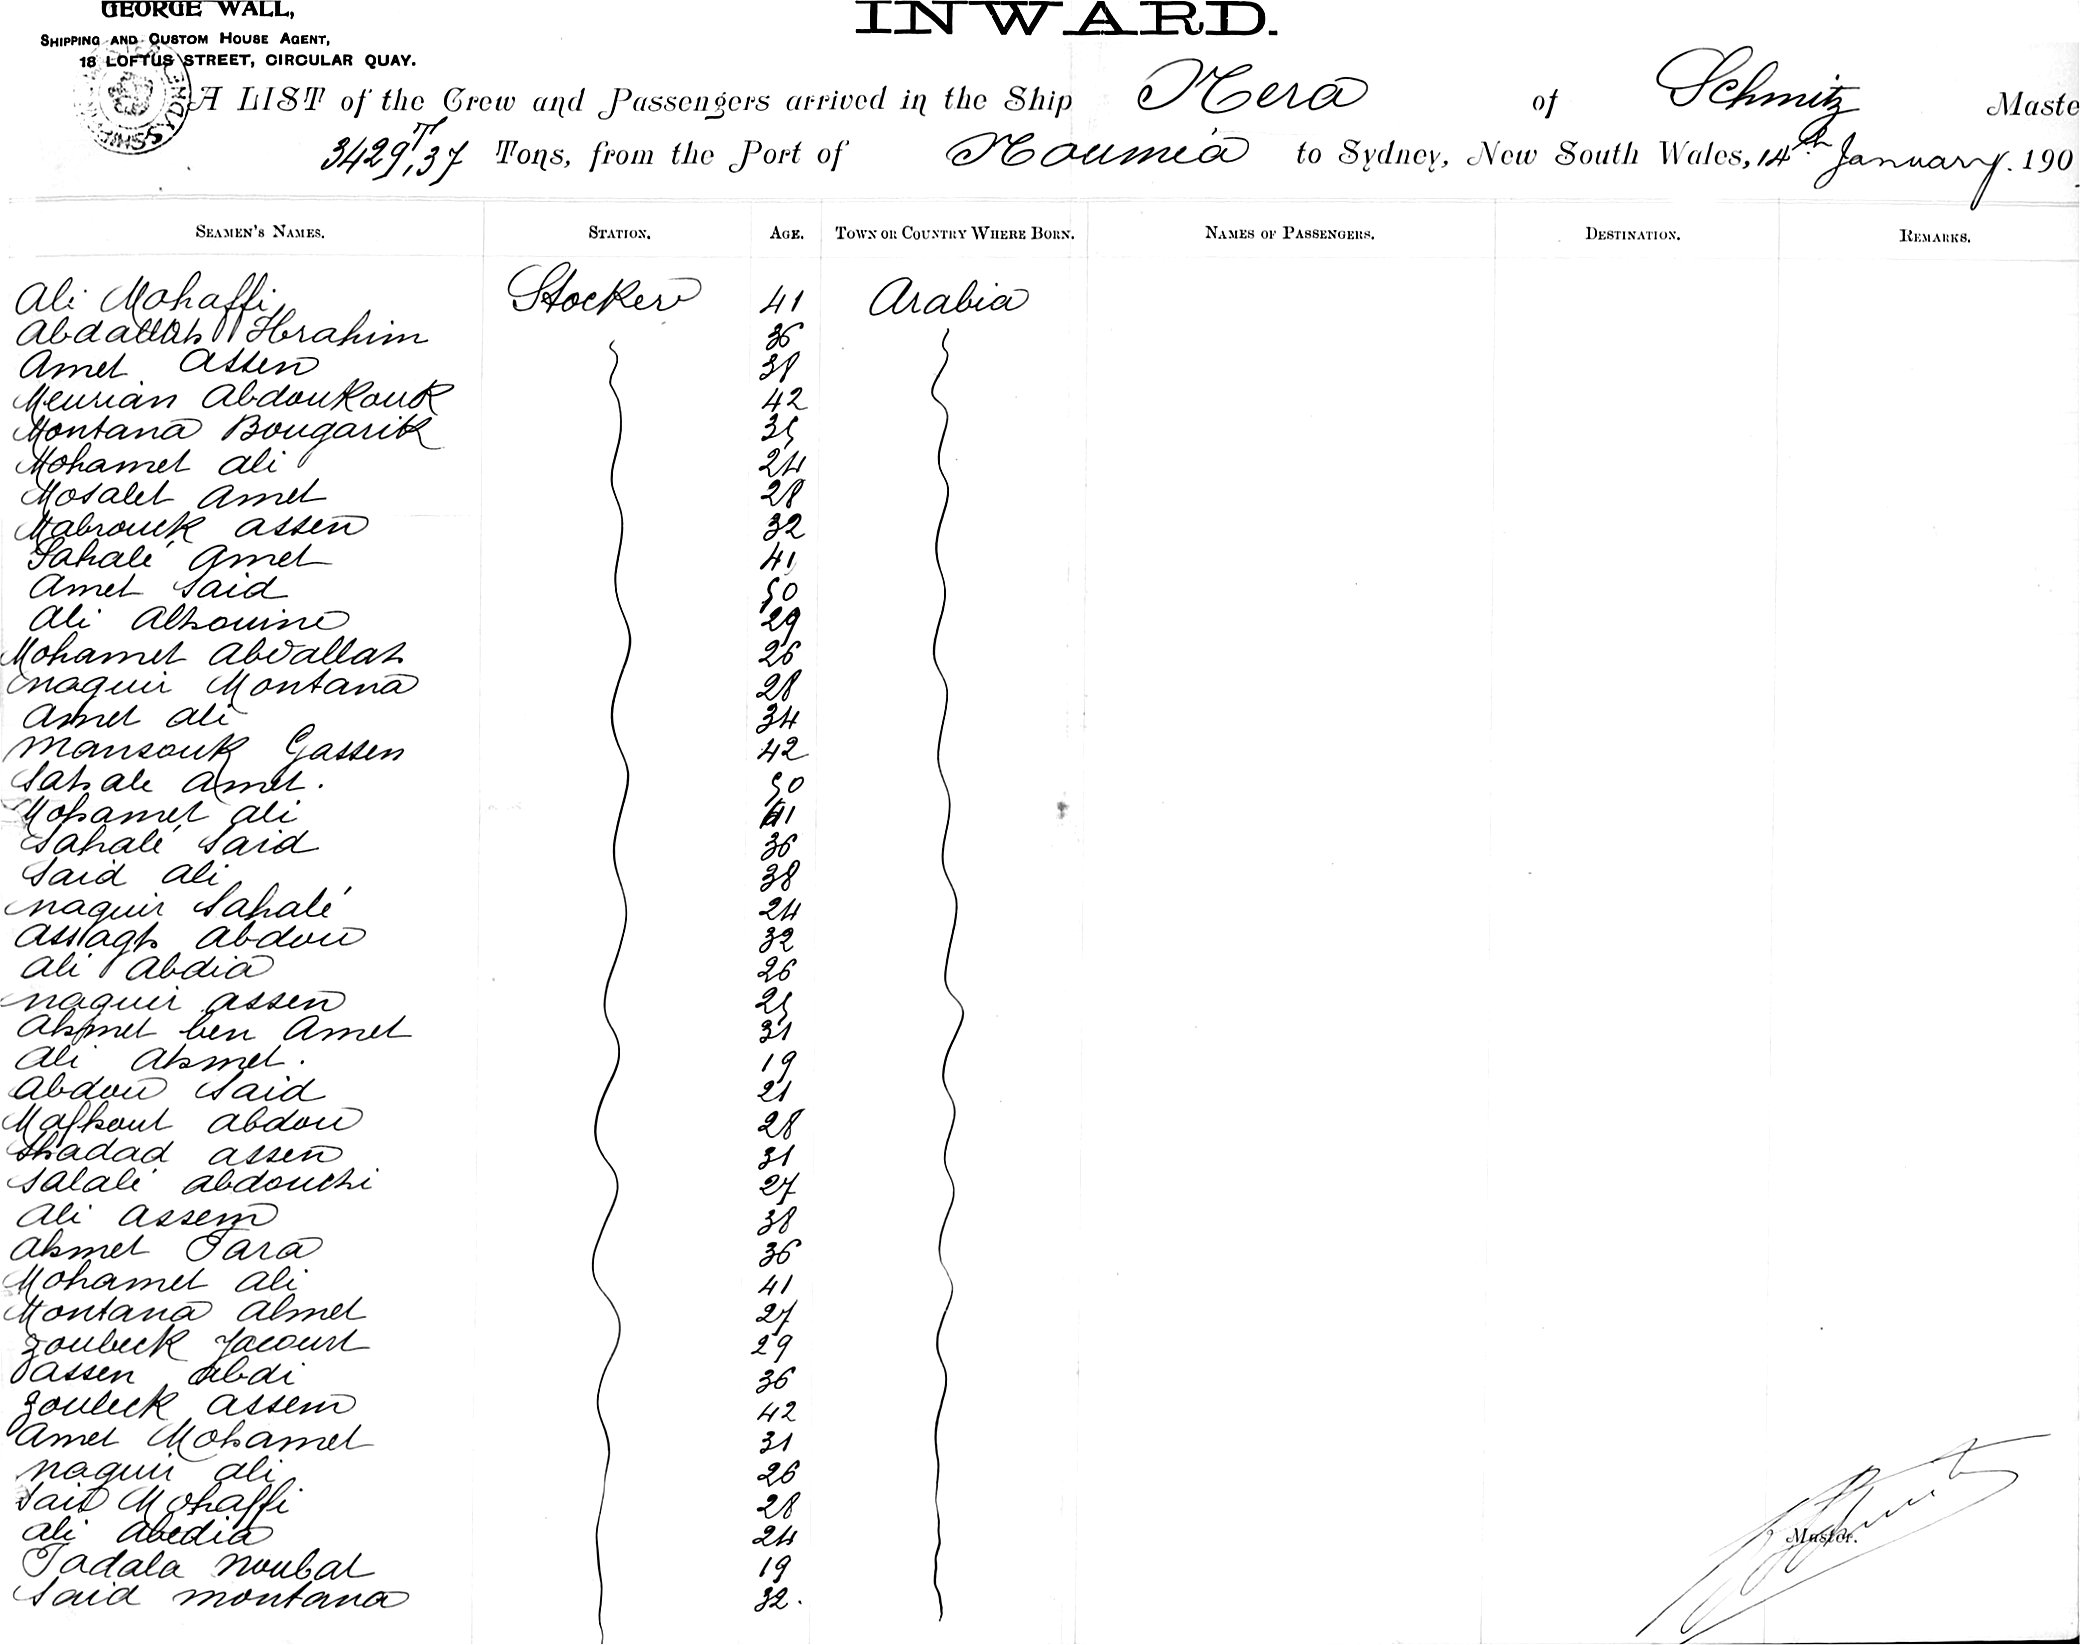 GEORGE WALL,
SHIPPING AND CUSTOM HOUSE AGENT,
18 LOFTUS STREET, CIRCULAR QUAY.
INWARD.
A LIST of the Crew and Passengers arrived in the Ship Nera of Schmitz Maste
3429T,37 Tons, from the Port of Nouméa to Sydney, New South Wales, 14th January. 190
SEAMEN'S NAMES. STATION. AGE. TOWN OR COUNTRY WHERE BORN. NAMES OF PASSENGERS. DESTINATION. REMARKS.
Ali Mohaffi Stocker 41 Arabia
Abdallah Ibrahim 36
Amet Assen 38
Meurian Abdoukouk 42
Montana Bougarik 35
Mohamet Ali 24
Mosalet Amet 28
Mabrouck Assen 32
Sahalé Amet 41
Amet Said 50
Ali Alhouine 29
Mohamet Abdallah 26
Naguir Montana 28
Amet Ali 34
Mansouk Gassen 42
Sahale Amet. 50
Mohamet Ali 41
Sahalé Said 36
Said Ali 38
Naguir Sahalé 24
Assagh Abdou 32
Ali Abdia 26
Naguir Assen 25
Ahmet ben Amet 31
Ali Ahmet. 19
Abdou Said 21
Mafhout Abdou 28
Shadad Assen 31
Salali Abdouchi 27
Ali Assem 38
Ahmet Tara 36
Mohamet Ali 41
Montana Ahmet 27
Zoubeck Yacourt 29
Assen Abdi 36
Zoubeck Assem 42
Amet Mohamet 31
Naguir Ali 26
Said Mohaffi 28
Ali Abedia 24
Tadala Noubat 19
Said Montana 32.
Master.